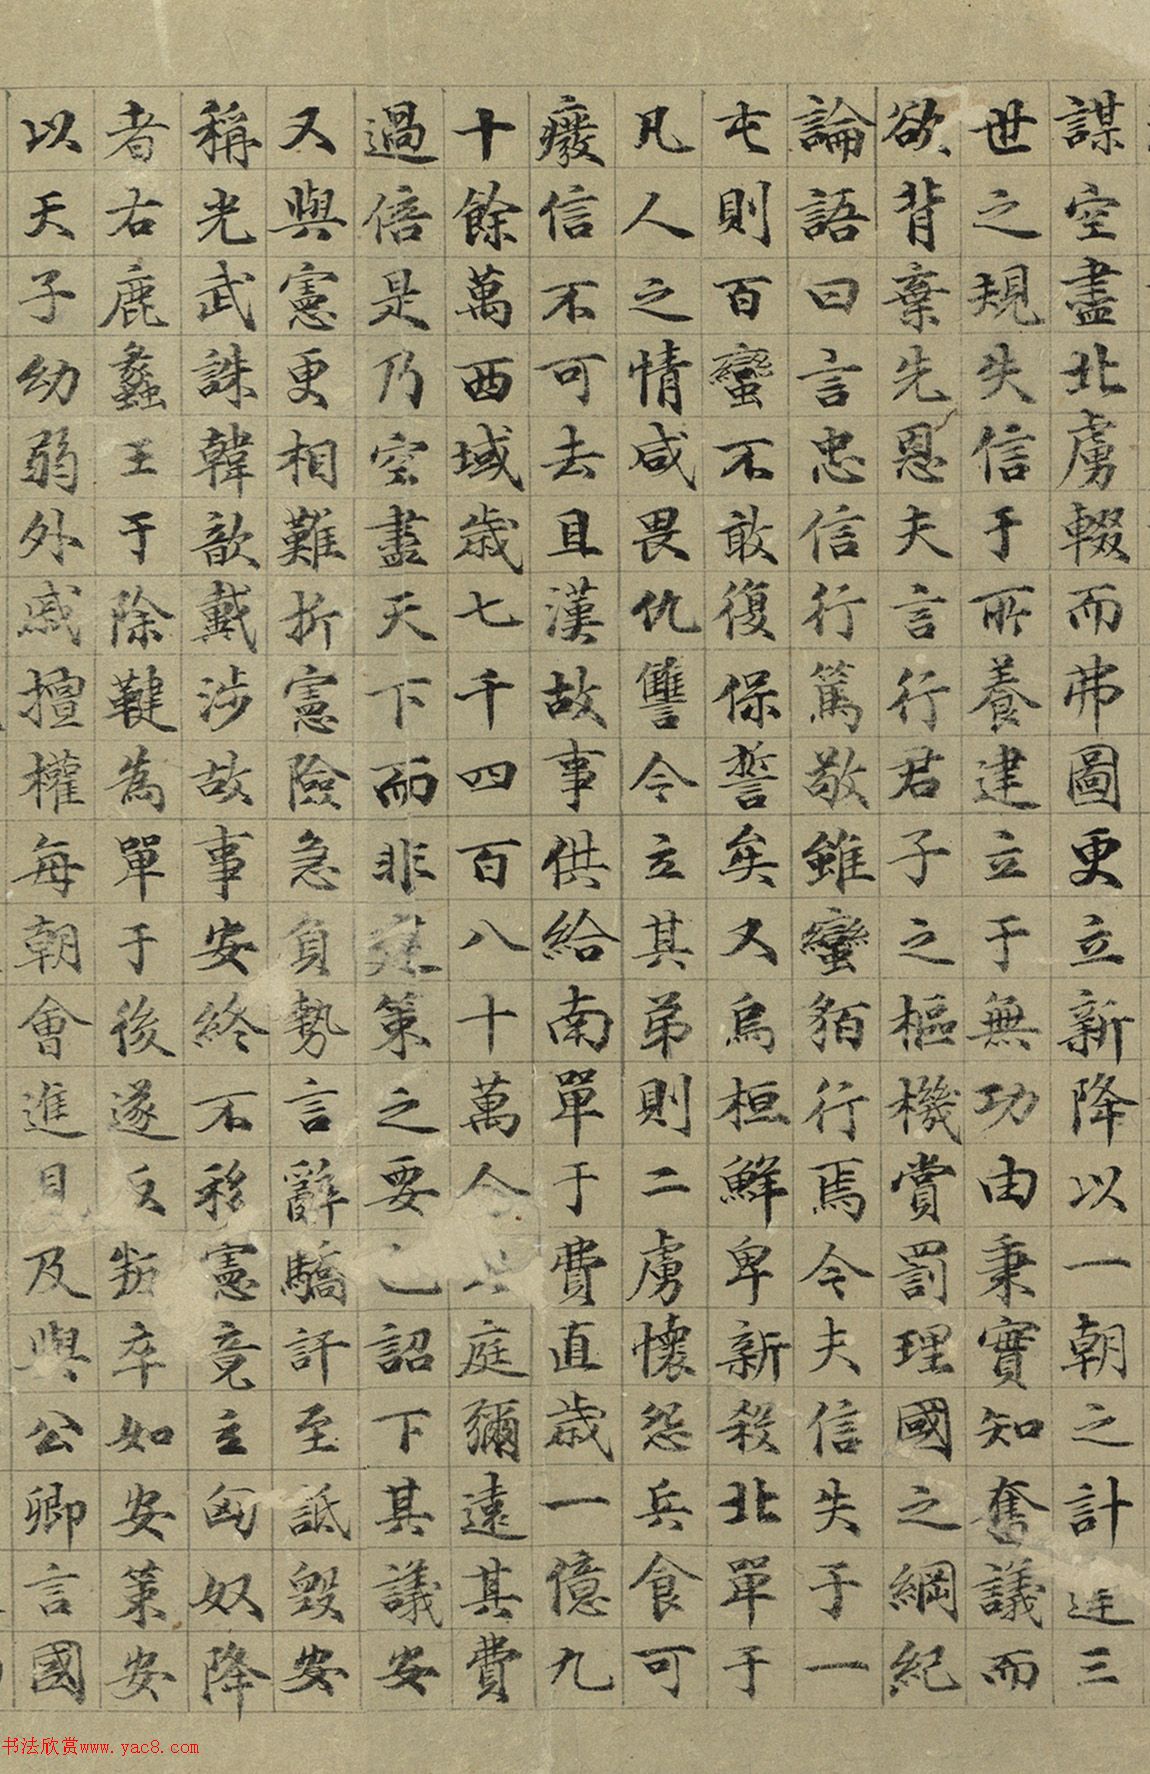 謀空盡北虜輟而弗圖更立新降以一朝之計違三
世之規失信于所養建立于無功由秉實知奮議而
欲背棄先恩夫言行君子之樞機賞罰理國之綱紀
論語曰言忠信行篤敬雖蠻貊行焉今夫信失于一
屯則百蠻不敢復保誓矣又烏桓鮮卑新殺北單于
凡人之情咸畏仇讐今立其弟則二虜懷怨兵食可
癈信不可去且漢故事供給南單于費直歲一億九
十餘萬西域歲七千四百八十萬今庭彌遠其費
過倍是乃空盡天下而非建策之要也詔下其議安
又與憲更相難折憲險急負勢言辭驕訐至詆毀安
稱光武誅韓歆戴涉故事安終不移憲竟立匈奴降
者右鹿蠡王于除鞬為單于後遂反叛卒如安策安
以天子幼弱外戚擅權每朝會進見及與公卿言國
书法欣赏www.yac8.com